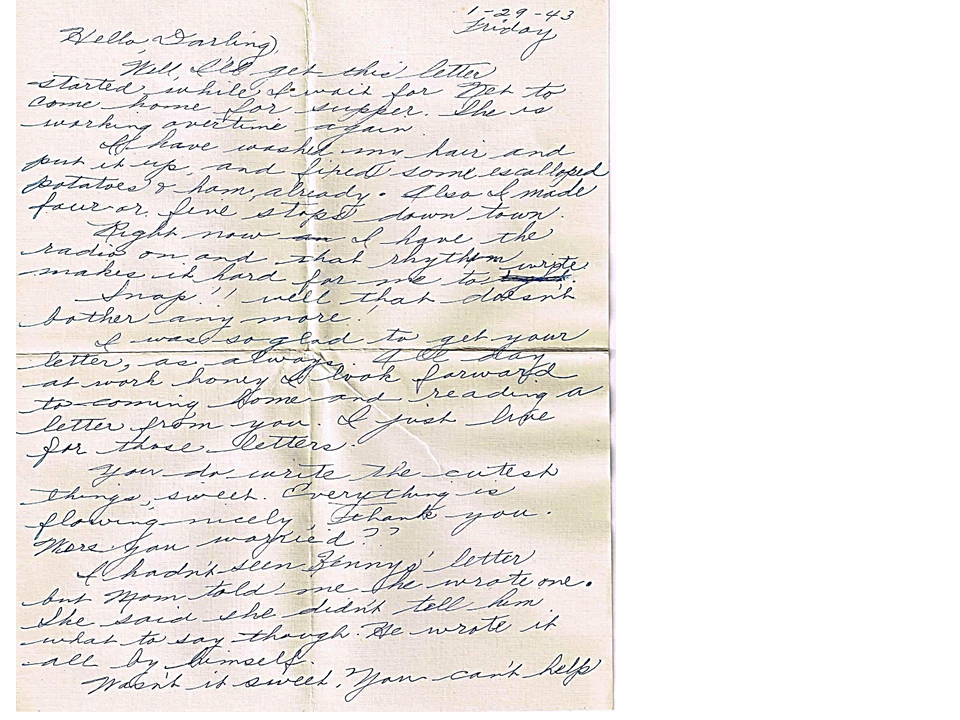 1-29-43
Friday
Hello Darling,
Well, I'll get this letter
started while I wait for Net to
come home for supper. She is
working overtime again.
I have washed my hair and
put it up, and fixed some escalloped
potatoes & ham, already. Also I made
four or five stops down town.
Right now an I have the
radio on and that rhythm
makes it hard for me to write.
Snap!! well that doesn't
bother any more.
I was so glad to get your
letter, as alway. All day
at work honey I look forward
to coming home and reading a
letter from you. I just live
for those letters.
You do write the cutest
things, sweet. Everything is
flowing nicely, thank you.
Were you worried??
I hadn't seen Kenny's letter
but Mom told me he wrote one.
She said she didn't tell him
what to say though. He wrote it
all by himself.
Wasn't it sweet. You can't help